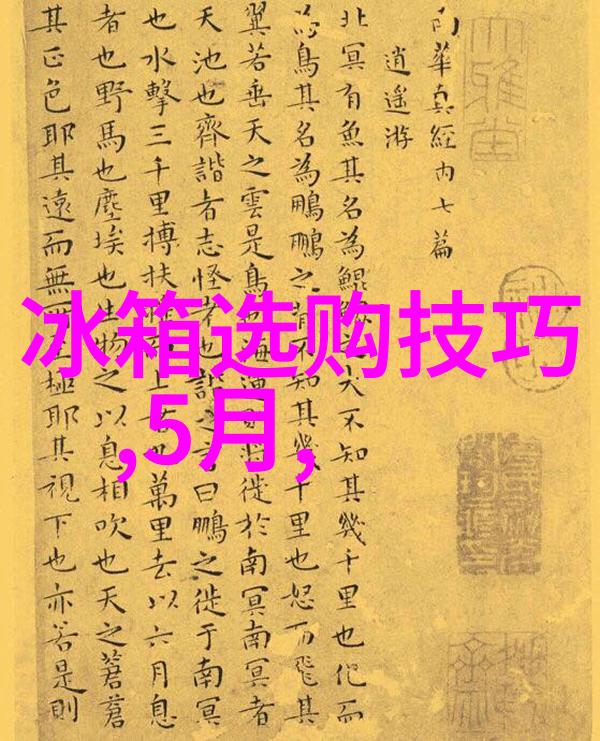 南華真經內七篇
逍遙游
北冥有魚其名為鯤鯤之大不知其幾千里也化而
為鳥其名為鵬鵬之背不知其幾千里也怒而飛其
翼若垂天之雲是鳥也海運則將徙於南冥南冥者
天池也齊諧者志怪者也諧之言曰鵬之徙于南冥
也水擊三千里搏扶搖而上者九萬里去以六月息
者也野馬也塵埃也生物之以息相吹也天之蒼蒼
其正色耶其遠而無所至極耶其視下也亦若是則
冰箱选购技巧
,5月,